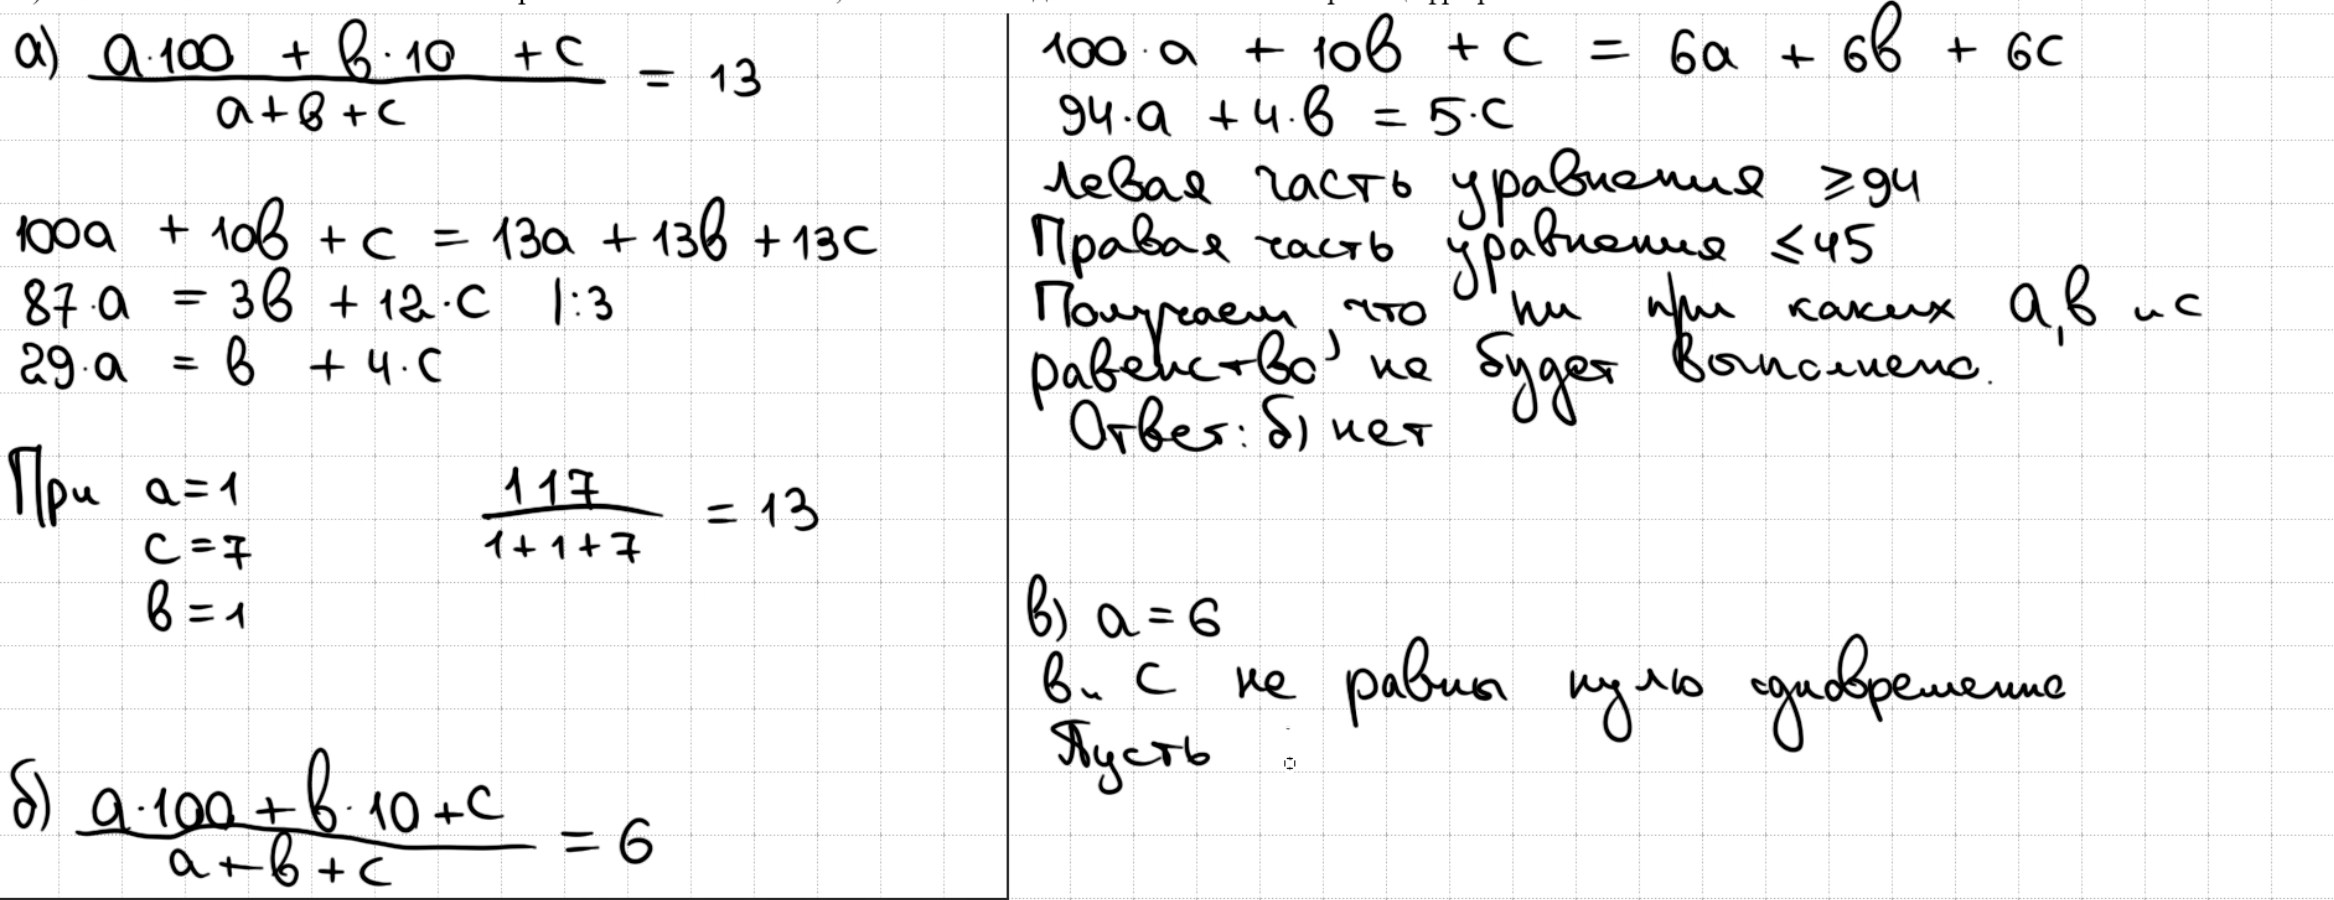 а) a·100 + b·10 + c / a+b+c = 13
100a + 10b + c = 13a + 13b + 13c
87·a = 3b + 12·c |:3
29·a = b + 4·c
При a=1
c=7
b=1
117 / 1+1+7 = 13
б) a·100 + b·10 + c / a+b+c = 6
100·a + 10b + c = 6a + 6b + 6c
94·a + 4·b = 5·c
Левая часть уравнения ≥94
Правая часть уравнения ≤45
Получаем, что ни при каких a, b и c
равенство не будет выполнено.
Ответ: б) нет
в) a=6
b и c не равны нулю одновременно
Пусть